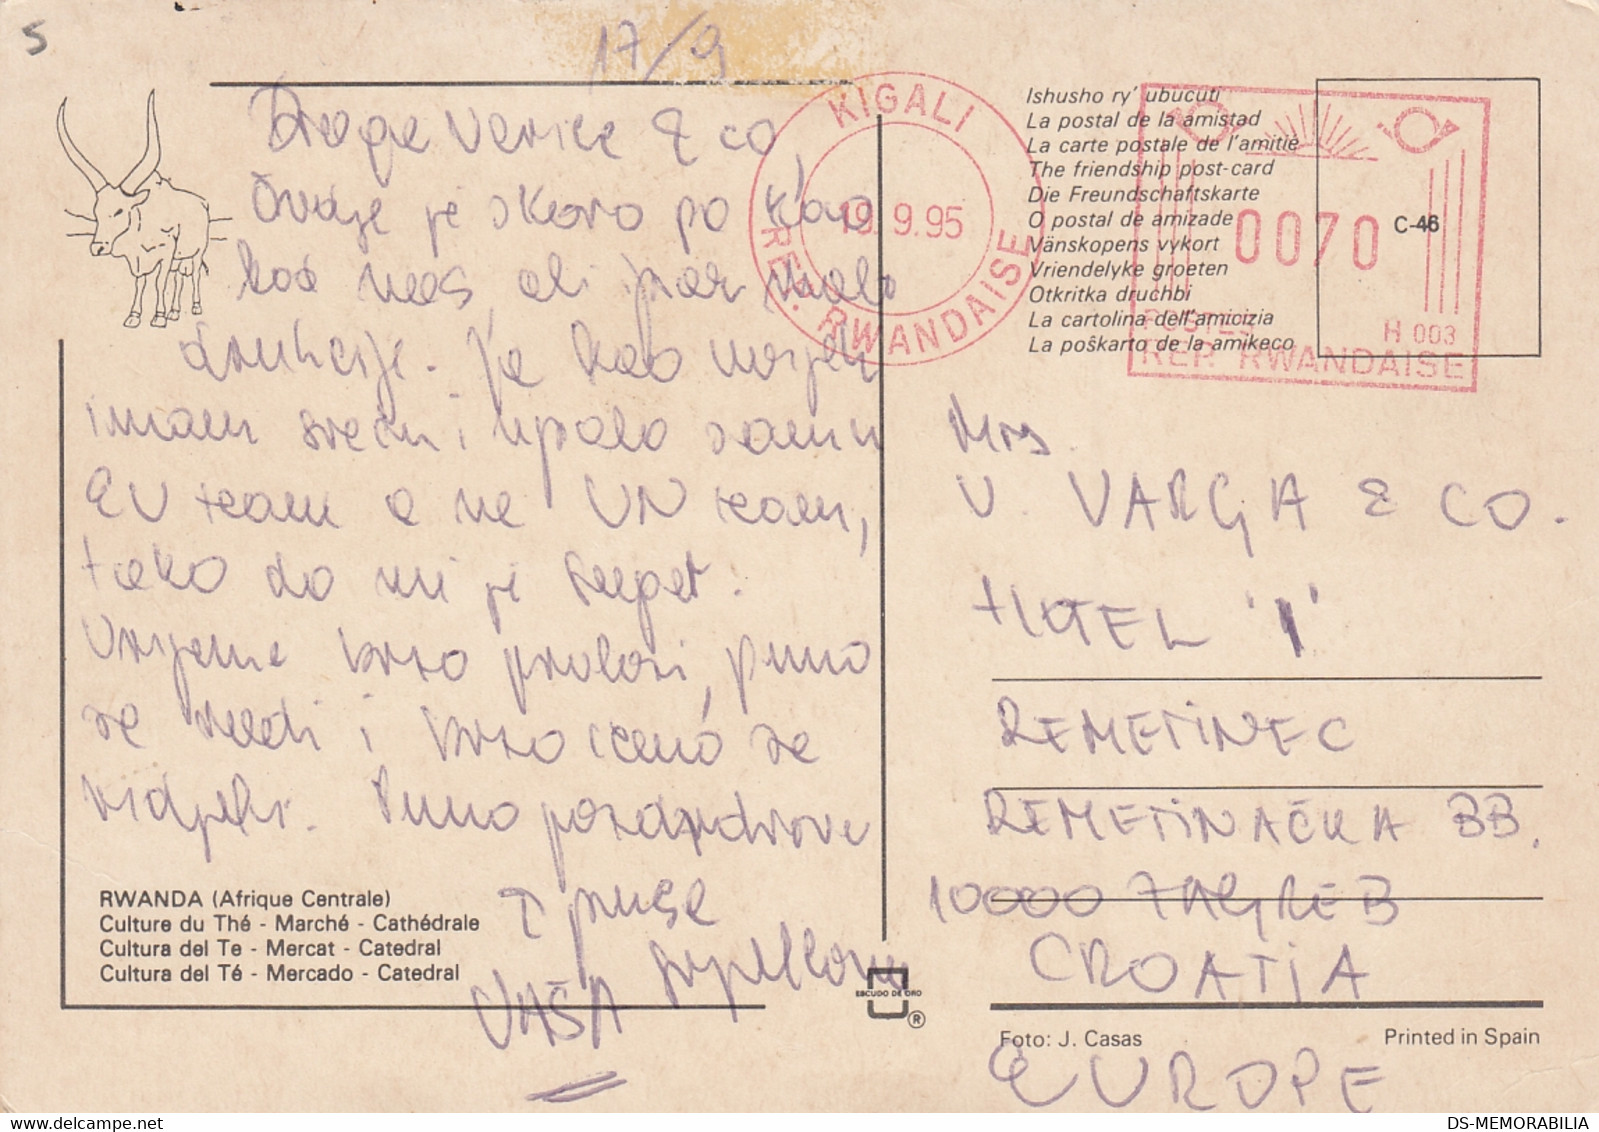 5
17/9
Draga Verice & co,
Ovdje je skoro po
kod nas, ali malo
drukčije. Ja kao uvijek
imam sreću i upalo sam u
EU team a ne UN team,
tako da mi je super.
Vrijeme brzo prolazi, puno
se radi i brzo ćemo se
vidjeti. Puno pozdrava
& puse
VAŠA
RWANDA (Afrique Centrale)
Culture du Thé - Marché - Cathédrale
Cultura del Te - Mercat - Catedral
Cultura del Té - Mercado - Catedral
KIGALI
19.9.95
REP. RWANDAISE
Ishusho ry' ubucuti
La postal de la amistad
La carte postale de l'amitié
The friendship post-card
Die Freundschaftskarte
O postal de amizade
Vänskopens vykort
Vriendelyke groeten
Otkritka druchbi
La cartolina dell'amicizia
La poŝkarto de la amikeco
0070
C-46
POSTES
H 003
REP. RWANDAISE
Mrs.
V. VARGA & CO.
HOTEL 'I'
REMETINEC
REMETINAČKA BB.
10000 ZAGREB
CROATIA
EUROPE
ESCUDO DE ORO
®
Foto: J. Casas
Printed in Spain
DS-MEMORABILIA